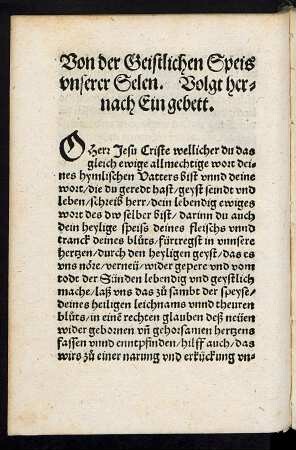 Von der Geistlichen Speis
vnserer Selen. Volgt her-
nach Ein gebett.
O Herr Jesu Criste wellicher du das
gleich ewige allmechtige wort dei-
nes hymlischen Vatters bist vnnd deine
wort/die du geredt hast/geyst seindt vnd
leben/schreib herr/dein lebendig ewiges
wort des dw selber bist/darinn du auch
dein heylige speiß deines fleischs vnnd
tranck deines blůts/fürtregst in vnnsere
hertzen/durch den heyligen geyst/das es
vns nöre/verneü/wider gepere vnd vom
todt der Sünden lebendig vnd geystlich
mache/laß vns das zů sambt der speyse/
deines heiligen leichnams vnnd theuren
blůts/in einē rechten glauben deß neüen
wider gebornen vn̄ gehorsamen hertzens
fassen vnnd enntpfinden/hilff auch/das
wirs zů einer narung vnd erkückung vn-